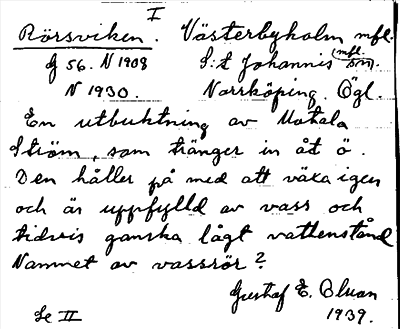 I
Rörsviken. Västerbyholm mfl.
G 56. N 1908 S:t Johannis (mfl. sn.)
N 1930. Norrköping. Ögl.
En utbuktning av Motala
Ström, som tränger in åt ö.
Den håller på med att växa igen
och är uppfylld av vass och
tidvis ganska lågt vattenstånd
Namnet av vassrör?
Gustaf E. Bluan
1939.
Se II